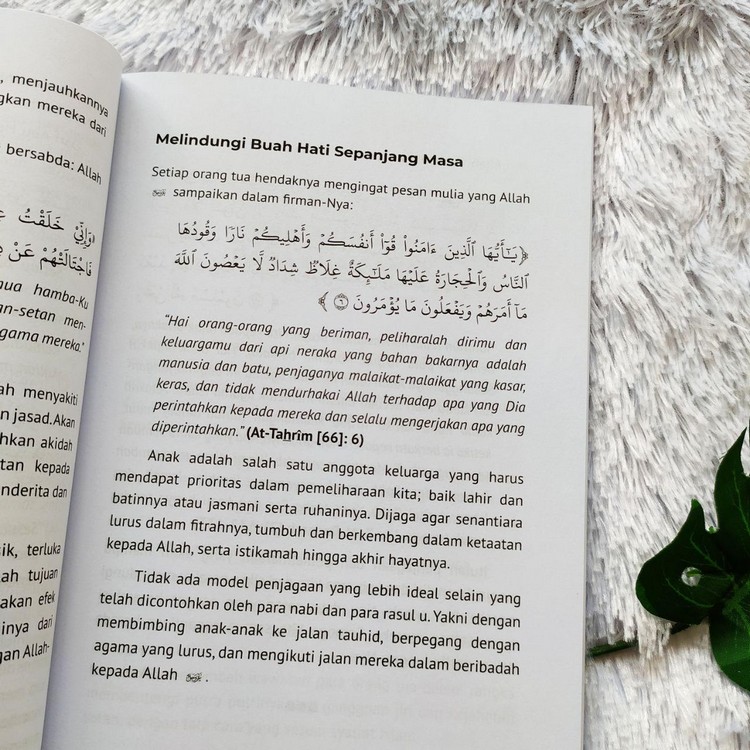 , menjauhkannya
gkan mereka dari
bersabda: Allah
﴿وَإِنِّيْ خَلَقْتُ
فَاجْتَالَتْهُمْ عَنْ
nua hamba-Ku
an-setan men-
agama mereka."
ah menyakiti
n jasad. Akan
hkan akidah
tan kepada
nderita dan
sik, terluka
lah tujuan
akan efek
inya dari
gan Allah-
Melindungi Buah Hati Sepanjang Masa
Setiap orang tua hendaknya mengingat pesan mulia yang Allah
sampaikan dalam firman-Nya:
﴿يَـٰٓأَيُّهَا ٱلَّذِينَ ءَامَنُوا۟ قُوٓا۟ أَنفُسَكُمْ وَأَهْلِيكُمْ نَارًا وَقُودُهَا
ٱلنَّاسُ وَٱلْحِجَارَةُ عَلَيْهَا مَلَـٰٓئِكَةٌ غِلَاظٌ شِدَادٌ لَّا يَعْصُونَ ٱللَّهَ
مَآ أَمَرَهُمْ وَيَفْعَلُونَ مَا يُؤْمَرُونَ ٦﴾
"Hai orang-orang yang beriman, peliharalah dirimu dan
keluargamu dari api neraka yang bahan bakarnya adalah
manusia dan batu, penjaganya malaikat-malaikat yang kasar,
keras, dan tidak mendurhakai Allah terhadap apa yang Dia
perintahkan kepada mereka dan selalu mengerjakan apa yang
diperintahkan." (At-Tahrîm [66]: 6)
Anak adalah salah satu anggota keluarga yang harus
mendapat prioritas dalam pemeliharaan kita; baik lahir dan
batinnya atau jasmani serta ruhaninya. Dijaga agar senantiara
lurus dalam fitrahnya, tumbuh dan berkembang dalam ketaatan
kepada Allah, serta istikamah hingga akhir hayatnya.
Tidak ada model penjagaan yang lebih ideal selain yang
telah dicontohkan oleh para nabi dan para rasul u. Yakni dengan
membimbing anak-anak ke jalan tauhid, berpegang dengan
agama yang lurus, dan mengikuti jalan mereka dalam beribadah
kepada Allah .